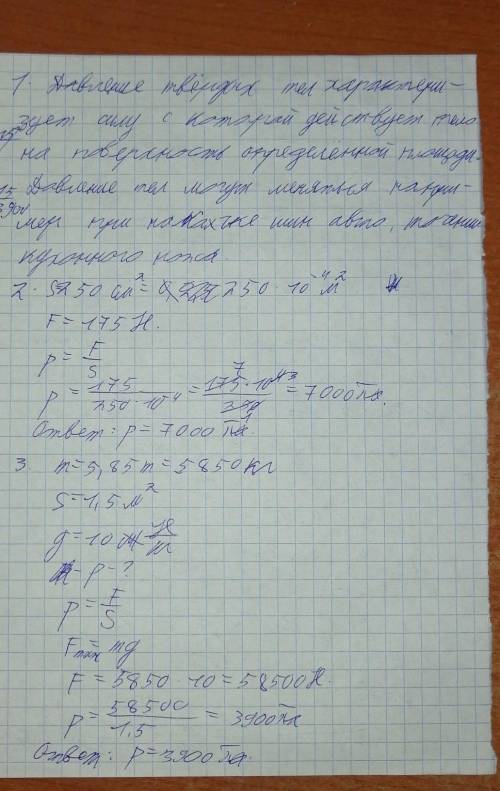 1. Давление твёрдых тел характери-
зует силу с которой действует тело
на поверхность определенной площади.
Давление тел могут меняться напри-
мер при накачке шин авто, точении
кухонного ножа.
2. S=250 см²= 250 · 10⁻⁴ м²
F = 175 Н.
p = F/S
p = 175/250·10⁻⁴ = 175·10⁴/250 = 7000 Па.
Ответ: p = 7000 Па.
3. m=5,85т=5850 кг
S=1,5 м²
g=10 Н/кг
p - ?
p = F/S
Fтяж = mg
F = 5850 · 10 = 58500 Н.
p = 58500/1,5 = 3900 Па
Ответ: p=3900 Па.